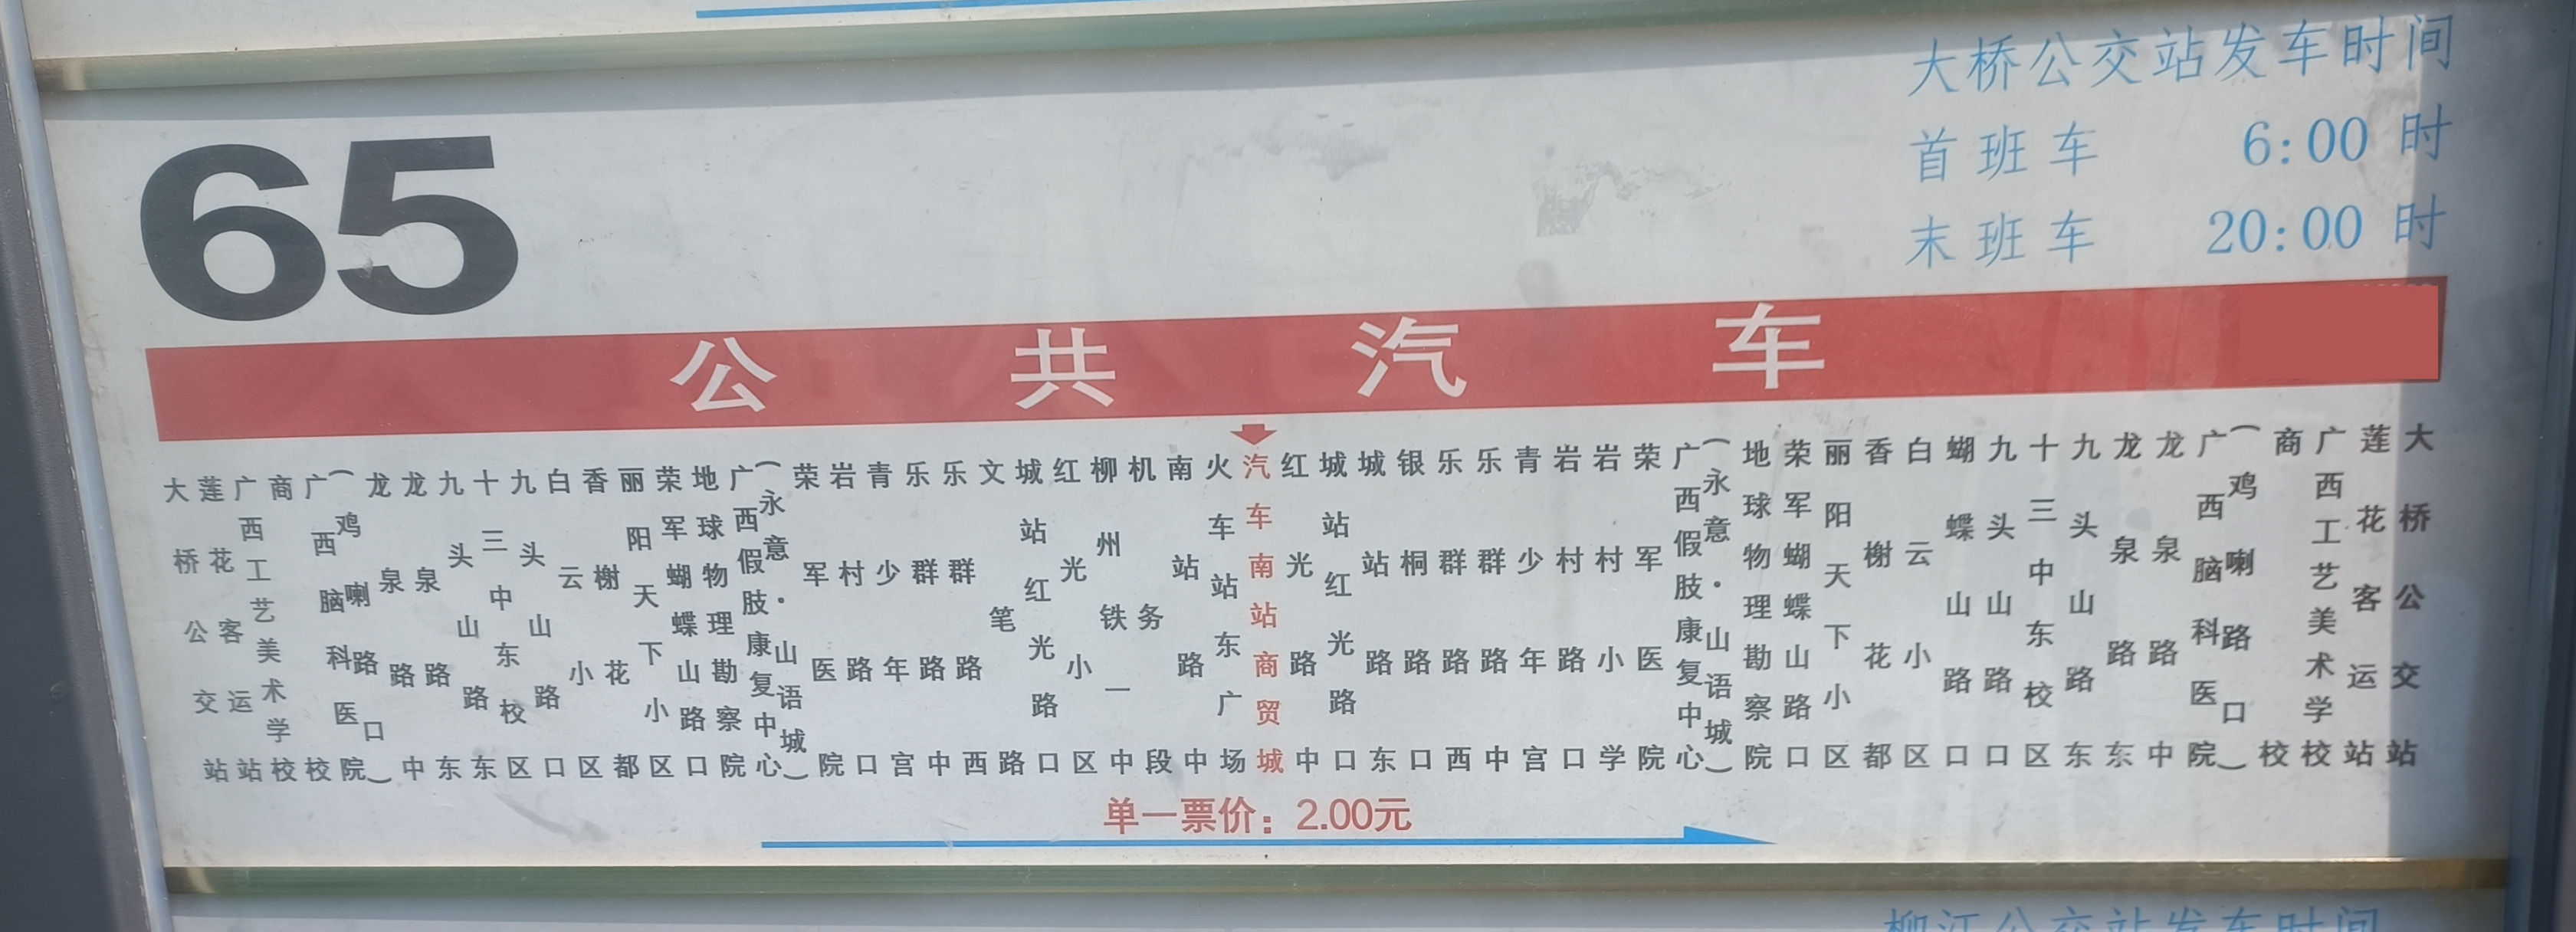 大桥公交站发车时间
首班车 6:00 时
末班车 20:00 时
65
公共汽车
大桥公交站
莲花客运站
广西工艺美术学校
商校
广西脑科医院
(鸡喇路口)
龙泉路中
龙泉路东
九头山路东
十三中东校区
九头山路口
白云小区
香榭花都
丽阳天下小区
荣军蝴蝶山路口
地球物理勘察院
广西假肢康复中心
(永意·山语城)
荣军医院
岩村路口
青少年宫
乐群路中
乐群路西
文笔路
城站红光路口
红光小区
柳州铁一中
机务段
南站路中
火车站东广场
汽车南站商贸城
红光路中
城站红光路口
城站路东
银桐路口
乐群路西
乐群路中
青少年宫
岩村路口
岩村小学
荣军医院
广西假肢康复中心
(永意·山语城)
地球物理勘察院
荣军蝴蝶山路口
丽阳天下小区
香榭花都
白云小区
蝴蝶山路口
九头山路口
十三中东校区
九头山路东
龙泉路东
龙泉路中
广西脑科医院
(鸡喇路口)
商校
广西工艺美术学校
莲花客运站
大桥公交站
单一票价：2.00元
柳江公交站发车时间